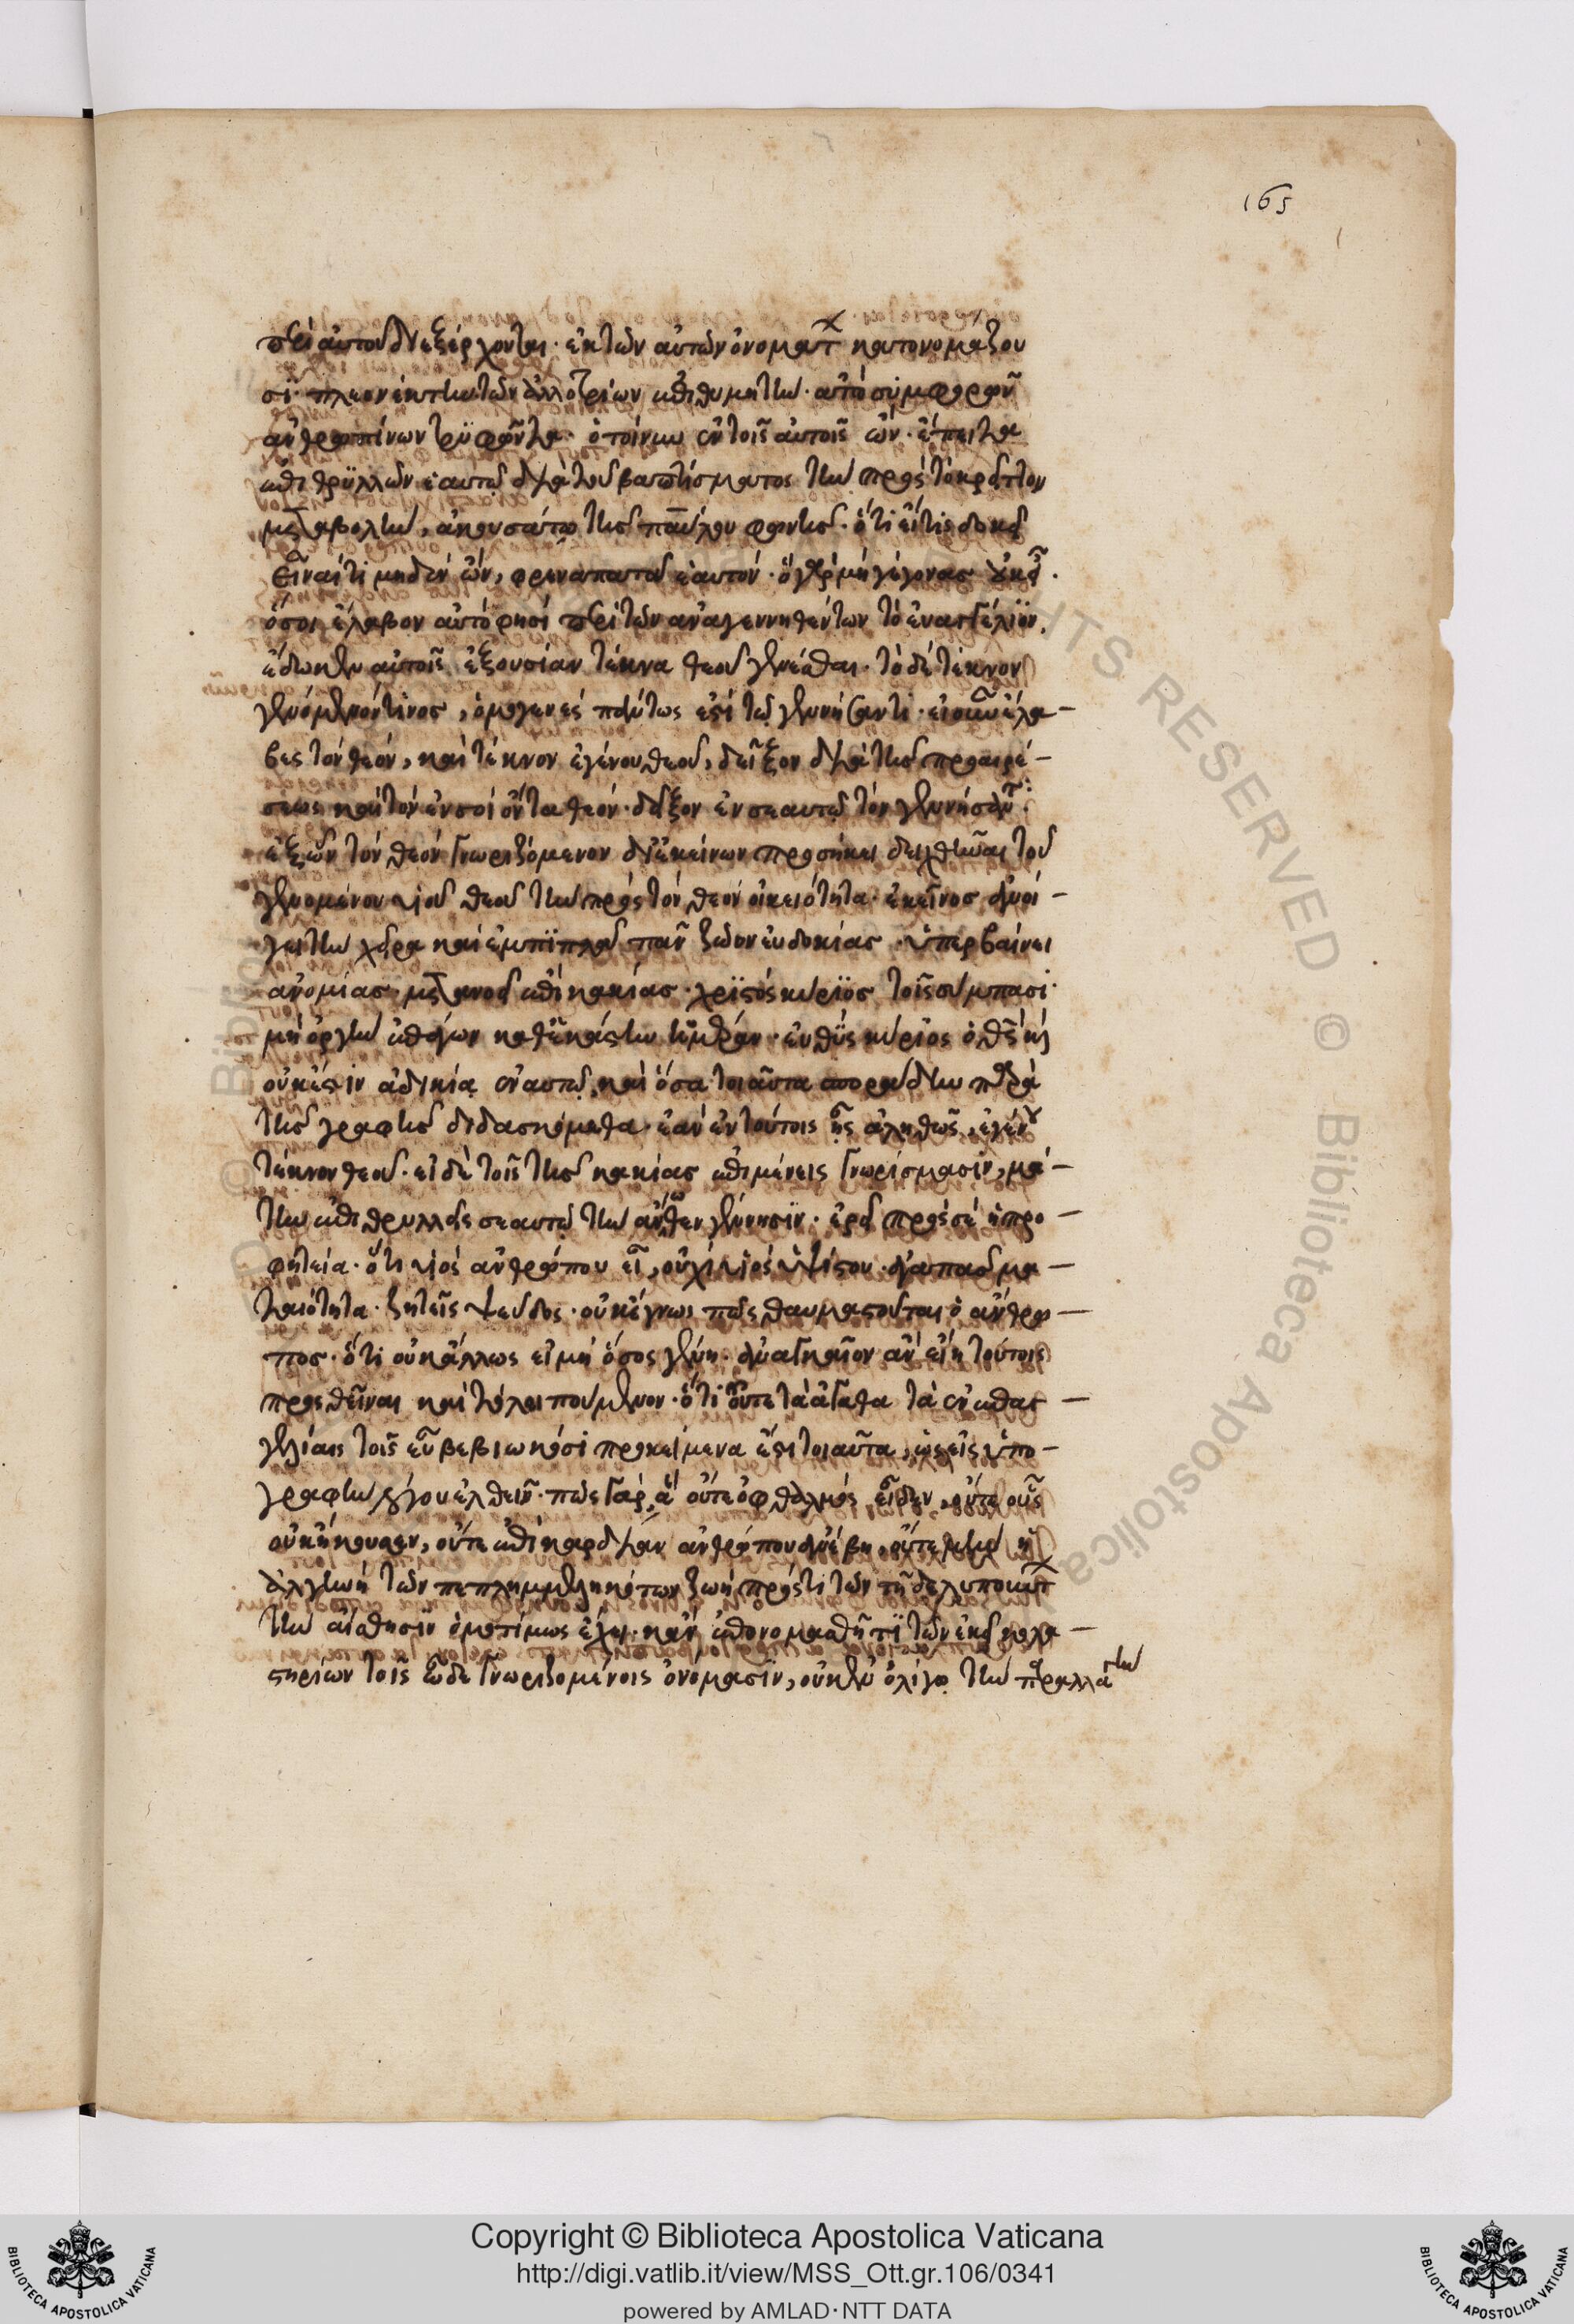 165
περὶ αὐτοῦ διεξέρχονται· ἐκ τῶν αὐτῶν ὀνομάτ κατονομάζου
σι· πλεονέκτην τῶν ἀλλοτρίων ἐπιθυμητὴν· ἀπὸ συμφορῶν
ἀνθρωπίνων τρυφῶντα· ὁ τοίνυν ἐν τοῖς αὐτοῖς ὢν· ἔπειτα
ἐπιθρυλλῶν ἑαυτῷ διὰ τοῦ βαπτίσματος τὴν πρὸς τὸ κρεῖττον
μεταβολὴν, ἀκουσάτω τῆς παύλου φωνῆς· ὅτι εἴτις δοκεῖ
εἶναί τι μηδὲν ὢν, φρεναπατᾷ ἑαυτόν· ὃ γὰρ μὴ γέγονας οὐκ εἶ·
ὅσοι ἔλαβον αὐτὸ φησὶ περὶ τῶν ἀναγεννηθέντων τὸ εὐαγγέλιον,
ἔδωκεν αὐτοῖς ἐξουσίαν τέκνα θεοῦ γενέσθαι· τὸ δὲ τέκνον
γενόμενόν τινος, ὁμογενές πάντως ἐστὶ τῷ γεννήσαντι· εἰ οὖν ἔλα–
βες τὸν θεόν, καὶ τέκνον ἐγένου θεοῦ, δεῖξον διὰ τῆς προαιρέ–
σεως καὶ τὸν ἐν σοὶ ὄντα θεόν· δεῖξον ἐν σεαυτῷ τὸν γεννήσαντ·
ἐξ ὧν τὸν θεόν γνωριζόμενον δι' ἐκείνων προσήκει δειχθῆναι τοῦ
γενομένου υἱοῦ θεοῦ τὴν πρὸς τὸν θεόν οἰκειότητα· ἐκεῖνος ἀνοί–
γει τὴν χεῖρα καὶ ἐμπιπλᾷ πᾶν ζῶον εὐδοκίας· ὑπερβαίνει
ἀνομίας· μετανοεῖ ἐπὶ κακίας· χριστὸς κύριος τοῖς σύμπασι·
μὴ ὀργὴν ἐπάγων καθ' ἑκάστην ἡμέραν· εὐθὺς κύριος ὁ θεὸς καὶ
οὐκ ἔστιν ἀδικία ἐν αὐτῷ, καὶ ὅσα τοιαῦτα σποράδην παρὰ
τῆς γραφῆς διδασκόμεθα· ἐὰν ἐν τούτοις ᾖς ἀληθῶς, ἐγένου
τέκνον θεοῦ· εἰ δὲ τοῖς τῆς κακίας ἐπιμένεις γνωρίσμασιν, μά–
την ἐπιθρυλλεῖς σεαυτῷ τὴν ἄνωθεν γέννησιν· ἐρεῖ πρὸς σὲ ἡ προ–
φητεία· ὅτι υἱὸς ἀνθρώπου εἶ, οὐχὶ υἱὸς ὑψίστου· ἀγαπᾷς μα–
ταιότητα· ζητεῖς ψεῦδος· οὐκ ἔγνως πῶς θαυμαστοῦται ὁ ἄνθρω–
πος· ὅτι οὐκ ἄλλως εἰ μὴ ὅσιος γένη· ἀναγκαῖον ἂν εἴη τούτοις
προσθεῖναι καὶ τὸ λειπούμενον· ὅτι οὔτε τὰ ἀγαθὰ τὰ ἐν ἐπαγ–
γελίαις τοῖς εὖ βεβιωκόσι προκείμενα ἔστι τοιαῦτα, ὡς εἰς ὑπο–
γραφὴν λόγου ἐλθεῖν· πῶς γὰρ, ἃ οὔτε ὀφθαλμὸς εἶδεν, οὔτε οὖς
οὐκ ἤκουσεν, οὔτε ἐπὶ καρδίαν ἀνθρώπου ἀνέβη, οὔτε μὴν ἡ
ἀλγεινὴ τῶν πεπλημμεληκότων ζωὴ πρός τι τῶν τῇδε λυπούντ
τὴν αἴσθησιν ὁμοτίμως ἔχει· κἂν ἐπονομασθῇ τι τῶν ἐκεῖ κολα–
στηρίων τοῖς ὧδε γνωριζομένοις ὀνόμασιν, οὐκ ἐν ὀλίγῳ τὴν παραλλαγὴν
Copyright © Biblioteca Apostolica Vaticana
http://digi.vatlib.it/view/MSS_Ott.gr.106/0341
powered by AMLAD·NTT DATA